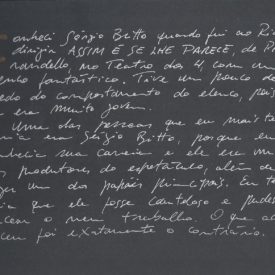 onheci Sérgio Britto quando fui ao Rio
dirigir ASSIM É SE LHE PARECE, de Pi
randello, no Teatro dos 4, com um
enco fantástico. Tive um pouco de
edo do comportamento do elenco, pois
era muito jovem.
Uma das pessoas que eu mais te
mia era Sérgio Britto, porque eu
nhecia sua carreira e ele era um
os produtores do espetáculo, além de
zer um dos papéis principais. Eu te
ia que ele fosse cauteloso e pudes
cear o meu trabalho. O que a
ceu foi exatamente o contrário.